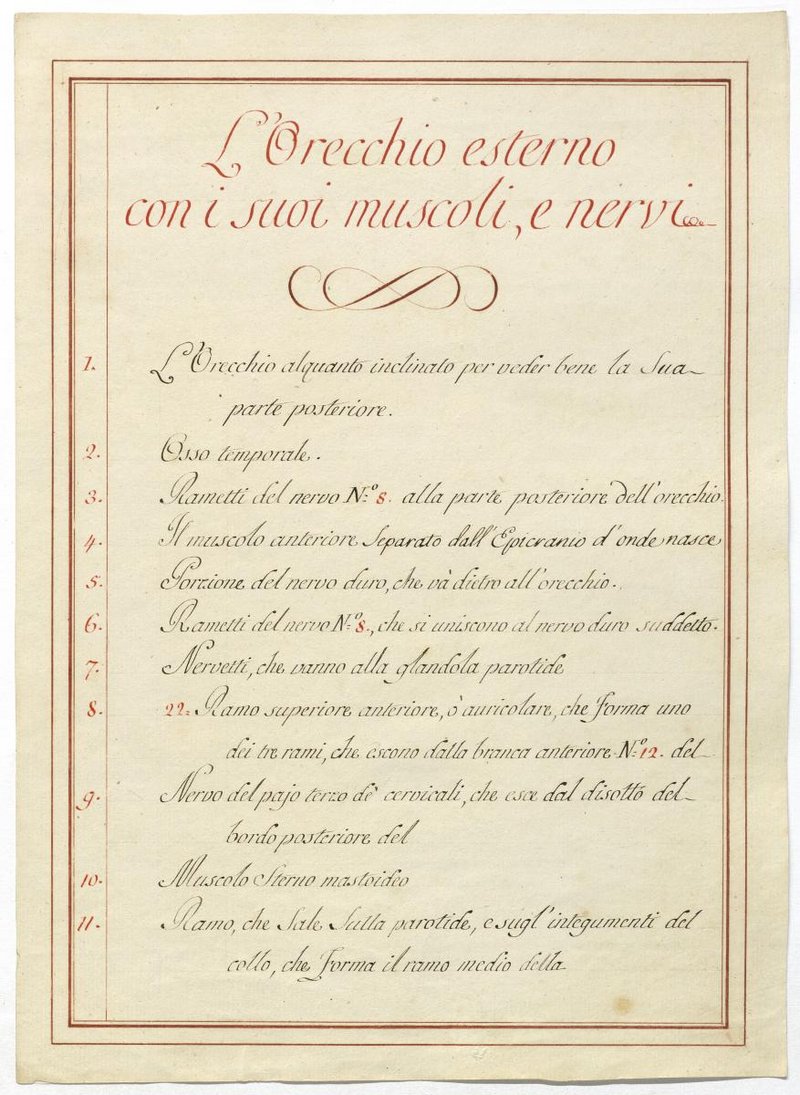 L'Orecchio esterno
con i suoi muscoli, e nervi
1. L'Orecchio alquanto inclinato per veder bene la Sua
parte posteriore.
2. Osso temporale.
3. Rametti del nervo N.º 8. alla parte posteriore dell'orecchio.
4. Il muscolo anteriore Separato dall'Epicranio d'onde nasce
5. Porzione del nervo duro, che và dietro all'orecchio.
6. Rametti del nervo N.º 8., che si uniscono al nervo duro suddetto.
7. Nervetti, che vanno alla glandola parotide
8. 22. Ramo superiore anteriore, ò auricolare, che Forma uno
dei tre rami, che escono dalla branca anteriore N.º 12. del
9. Nervo del pajo terzo de' cervicali, che esce dal disotto del
bordo posteriore del
10. Muscolo Sterno mastoideo
11. Ramo, che Sale Sulla parotide, e sugl'integumenti del
collo, che Forma il ramo medio della